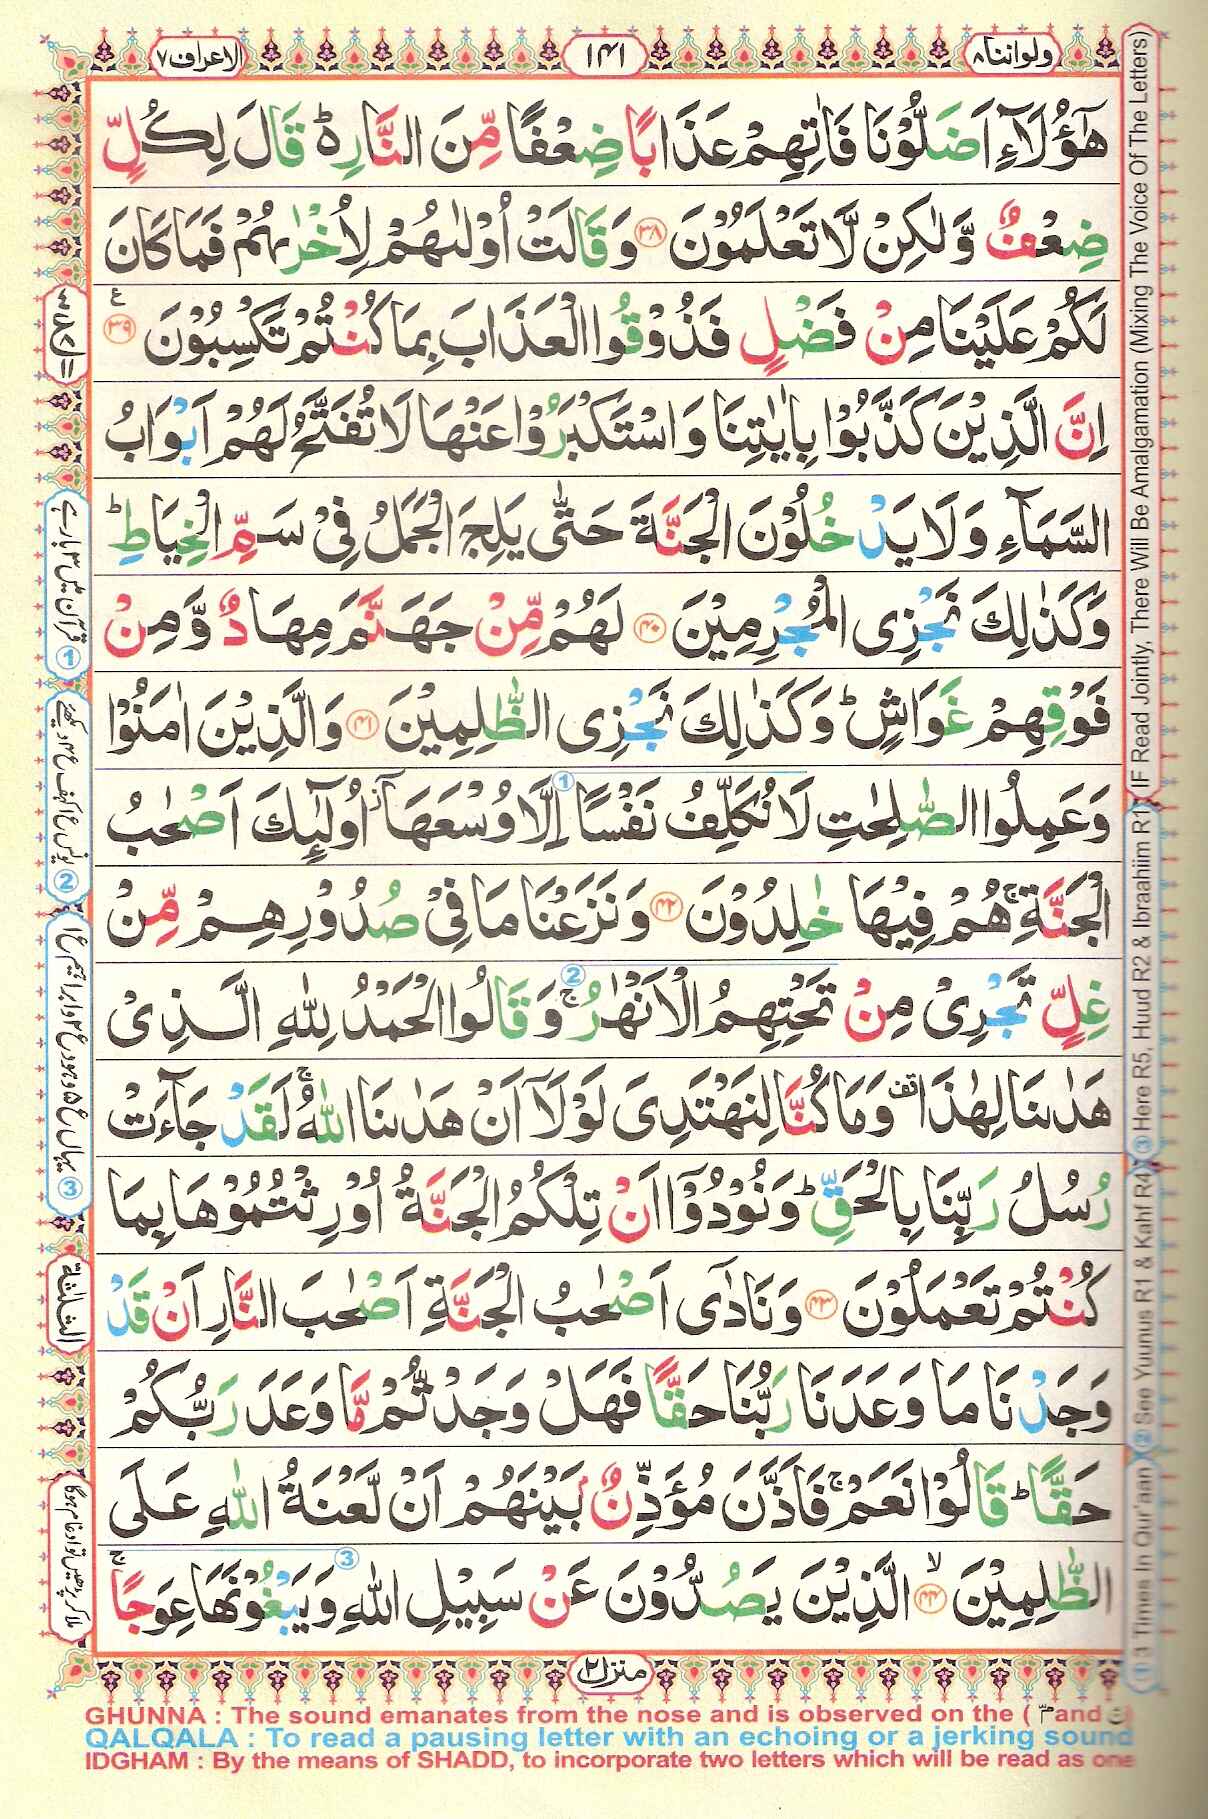 ولواننا ٨
١٤١
الاعراف ٧
هٰٓؤُلَآءِ اَضَلُّوْنَا فَاٰتِهِمْ عَذَابًا ضِعْفًا مِّنَ النَّارِ ؕ۬ قَالَ لِكُلٍّ
ضِعْفٌ وَّلٰكِنْ لَّا تَعْلَمُوْنَ ﴿۳۸﴾ وَقَالَتْ اُوْلٰىهُمْ لِاُخْرٰىهُمْ فَمَا كَانَ
لَكُمْ عَلَيْنَا مِنْ فَضْلٍ فَذُوْقُوا الْعَذَابَ بِمَا كُنْتُمْ تَكْسِبُوْنَ ﴿۳۹﴾ ع
اِنَّ الَّذِيْنَ كَذَّبُوْا بِاٰيٰتِنَا وَاسْتَكْبَرُوْا عَنْهَا لَا تُفَتَّحُ لَهُمْ اَبْوَابُ
السَّمَآءِ وَلَا يَدْخُلُوْنَ الْجَنَّةَ حَتّٰى يَلِجَ الْجَمَلُ فِيْ سَمِّ الْخِيَاطِ ؕ
وَكَذٰلِكَ نَجْزِى الْمُجْرِمِيْنَ ﴿۴۰﴾ لَهُمْ مِّنْ جَهَنَّمَ مِهَادٌ وَّمِنْ
فَوْقِهِمْ غَوَاشٍ ؕ وَكَذٰلِكَ نَجْزِى الظّٰلِمِيْنَ ﴿۴۱﴾ وَالَّذِيْنَ اٰمَنُوْا
وَعَمِلُوا الصّٰلِحٰتِ لَا نُكَلِّفُ نَفْسًا اِلَّا وُسْعَهَاۤ ؗ اُولٰٓئِكَ اَصْحٰبُ
الْجَنَّةِ ۚ هُمْ فِيْهَا خٰلِدُوْنَ ﴿۴۲﴾ وَنَزَعْنَا مَا فِيْ صُدُوْرِهِمْ مِّنْ
غِلٍّ تَجْرِيْ مِنْ تَحْتِهِمُ الْاَنْهٰرُ ۚ وَقَالُوا الْحَمْدُ لِلّٰهِ الَّذِيْ
هَدٰىنَا لِهٰذَا ۟ وَمَا كُنَّا لِنَهْتَدِىَ لَوْلَاۤ اَنْ هَدٰىنَا اللّٰهُ ۚ لَقَدْ جَآءَتْ
رُسُلُ رَبِّنَا بِالْحَقِّ ؕ وَنُوْدُوْۤا اَنْ تِلْكُمُ الْجَنَّةُ اُوْرِثْتُمُوْهَا بِمَا
كُنْتُمْ تَعْمَلُوْنَ ﴿۴۳﴾ وَنَادٰٓى اَصْحٰبُ الْجَنَّةِ اَصْحٰبَ النَّارِ اَنْ قَدْ
وَجَدْنَا مَا وَعَدَنَا رَبُّنَا حَقًّا فَهَلْ وَجَدْتُّمْ مَّا وَعَدَ رَبُّكُمْ
حَقًّا ؕ قَالُوْا نَعَمْ ۚ فَاَذَّنَ مُؤَذِّنٌۢ بَيْنَهُمْ اَنْ لَّعْنَةُ اللّٰهِ عَلَى
الظّٰلِمِيْنَ ﴿۴۴﴾ ۙ الَّذِيْنَ يَصُدُّوْنَ عَنْ سَبِيْلِ اللّٰهِ وَيَبْغُوْنَهَا عِوَجًا ۚ
منزل ٢
GHUNNA : The sound emanates from the nose and is observed on the ( مّ and نّ
QALQALA : To read a pausing letter with an echoing or a jerking sound
IDGHAM : By the means of SHADD, to incorporate two letters which will be read as one
① 3 Times In Qur'aan ② See Yuunus R1 & Kahf R4 ③ Here R5, Huud R2 & Ibrahiim R1 IF Read Jointly, There Will Be Amalgamation (Mixing The Voice Of The Letters)
① قرآن میں ۳ بار ہے
الثلثة
ملا کر پڑھیں تو ادغام ہوگا